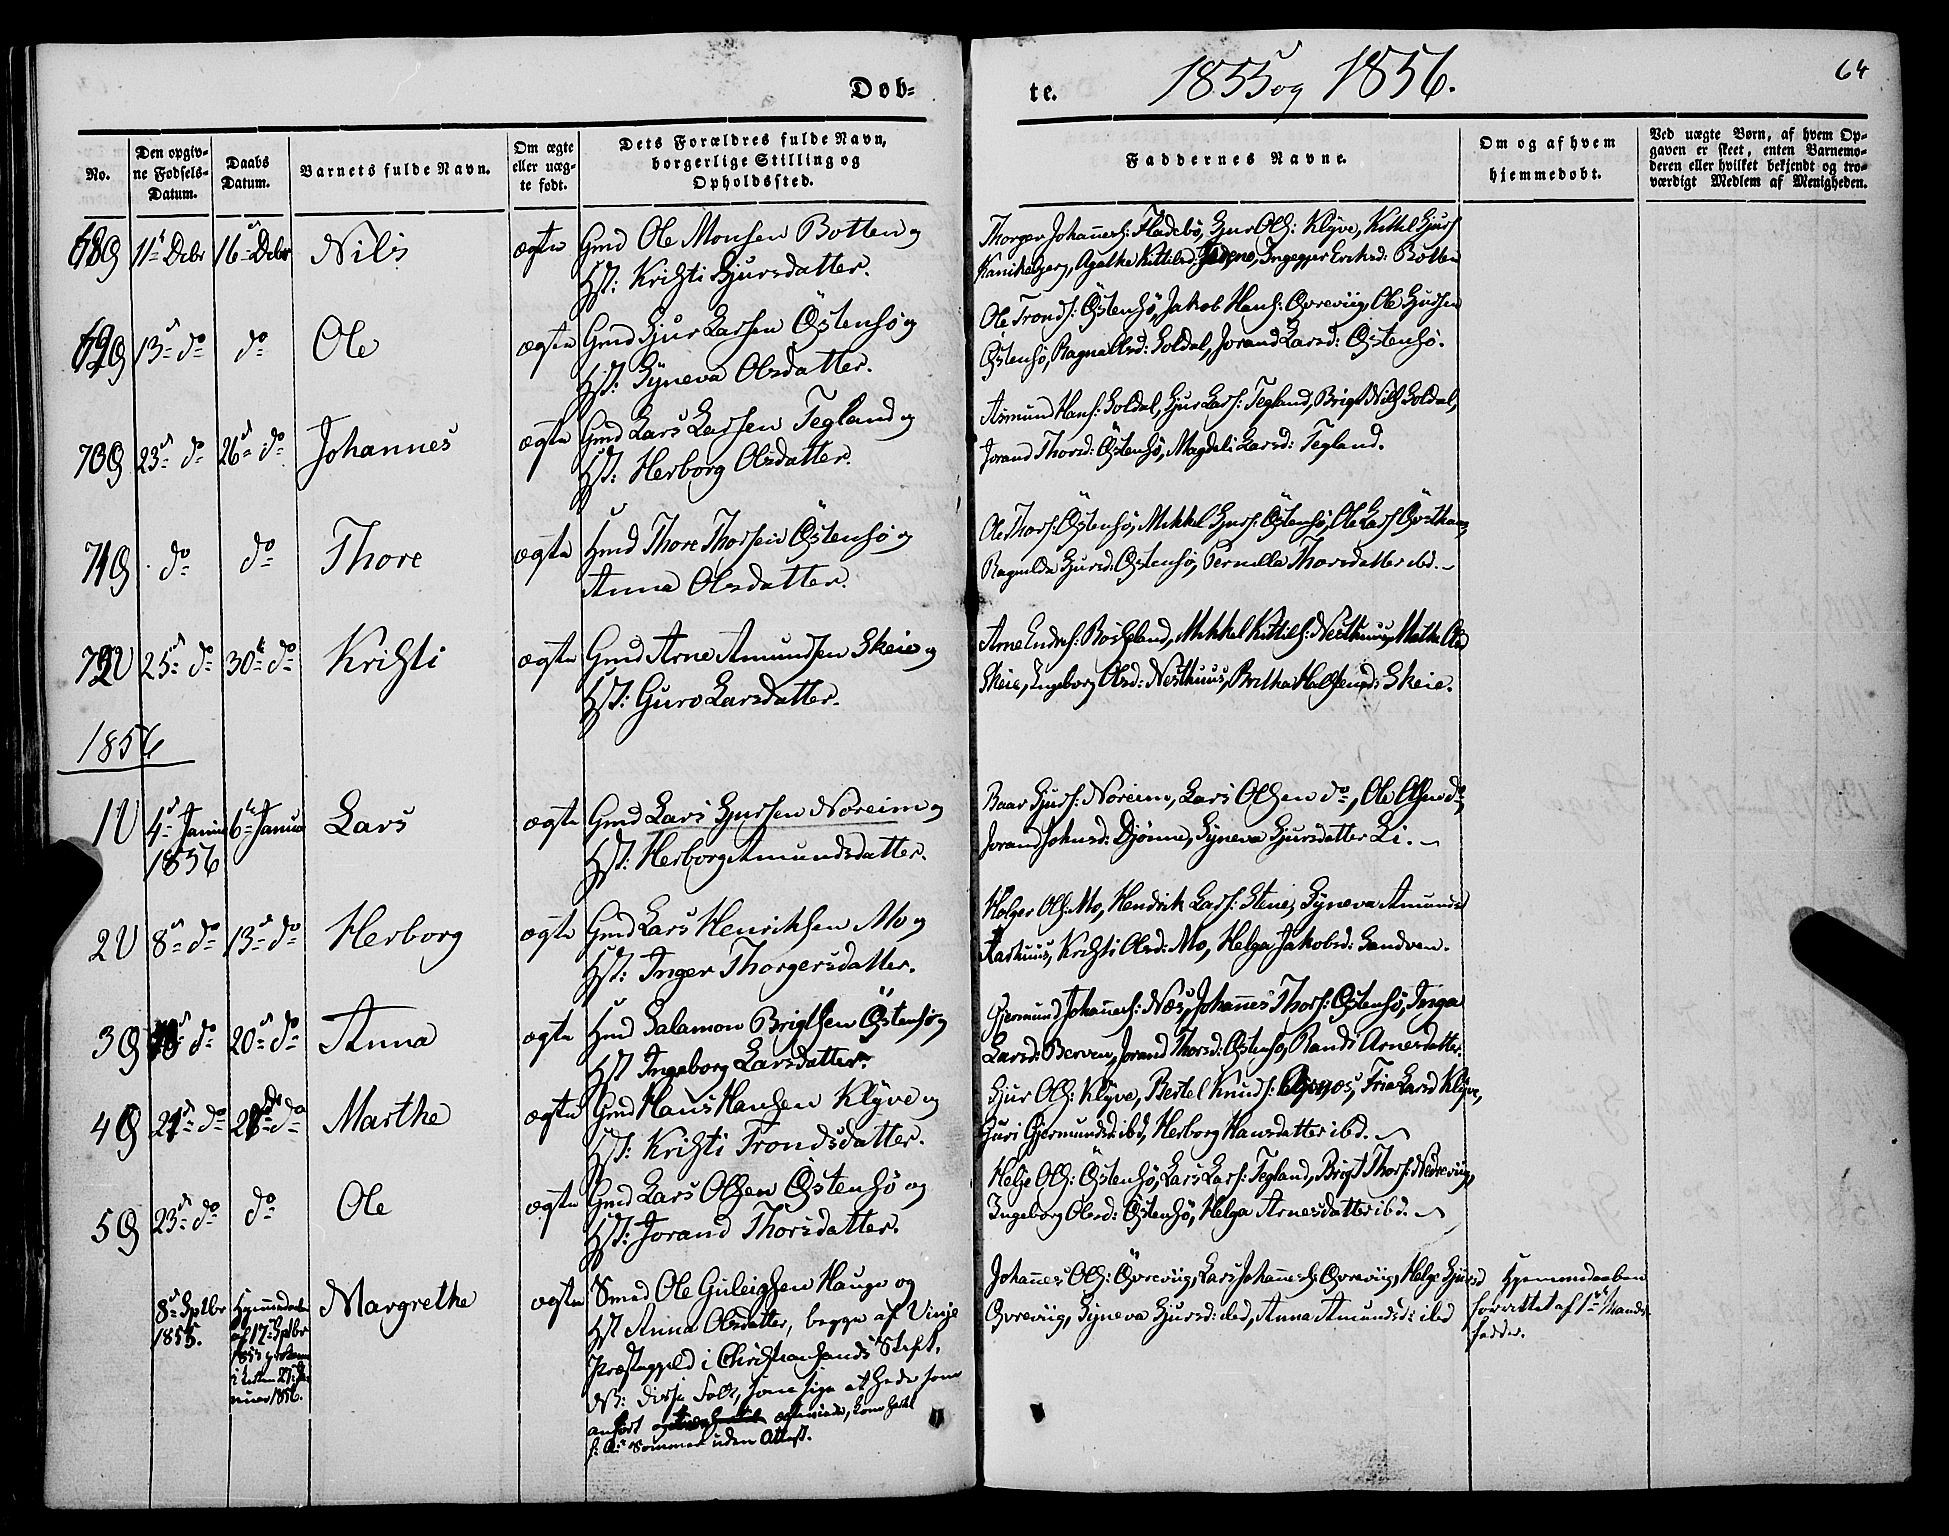 Døb-
te.
1855 og 1856.
64
No.
Den opgiv-
ne Fødsels-
Datum.
Daabs
Datum.
Barnets fulde Navn.
Om ægte
eller uæg-
te født.
Dets Forældres fulde Navn,
borgerlige Stilling og
Opholdssted.
Faddernes Navne.
Om og af hvem
hjemmedøbt.
Ved uægte Børn, af hvem Op-
gaven er skeet, enten Barnemo-
deren eller hvilket bekjendt og tro-
værdigt Medlem af Menigheden.
68 Ø 11te Debr 16de Debr Nils ægte Gmd Ole Monsen Botten og
Hst: Kristi Gjursdatter.
Thorger Johanness: Fladebø, Gjur Ols: Klyve, Kittel Gjurs
Agathe Kittilsd: Ingegjer Eriksd: Botten
69 Ø 13de do do Ole ægte Gmd Gjur Larsen Östensø og
Hst: Syneva Olsdatter.
Ole Tronds: Östensø, Jakob Hans: Øvreviig, Ole Gjursen
Östensø, Ragna Olsd: Soldal, Jorand Larsd: Östensø.
70 Ø 23de do 26de do Johannes ægte Gmd Lars Larsen Tegland og
Hst: Herborg Olsdatter.
Asmund Hans: Soldal, Gjur Lars: Tegland, Brigt Nils: Soldal,
Jorand Thorsd: Östensø, Magdeli Larsd: Tegland.
71 Ø do do Thore ægte Hmd Thore Thorsen Östensø og
Anna Olsdatter.
Ole Thors: Östensø, Mikkel Gjurs: Östensø, Ole Lars
Ragnilda Gjursd: Östensø, Pernilla Thorsdatter ibd.
72 V 25de do 30te do Kristi ægte Gmd Arne Amundsen Skeie og
Hst: Guro Larsdatter.
Arne Endres: Mikkel Kittils: Nesthuus, Marthe Olsd
Skeie, Ingeborg Olsd: Nesthuus, Britha Skeie.
1856
1 V 4de Januar 6te Januar Lars ægte Gmd Lars Gjursen Noreim og
1856 Hst: Herborg Amundsdatter.
Baar Gjurs: Noreim, Lars Olsen do, Ole do,
Jorand Johnsd: Djønne, Syneva Gjursdatter Li.
2 V 8de do 13de do Herborg ægte Gmd Lars Henriksen Mo og
Hst: Inger Thorgersdatter.
Holger Ols: Mo, Hendrik Lars: Stene, Syneva Amundsd
Aarhuus, Kristi Olsd: Mo, Helga Jakobsd: Sandven.
3 Ø do 20de do Anna ægte Hmd Salamon Brigtsen Östensø og
Hst Ingeborg Larsdatter.
Gjermund Johanness: Næs, Johannes Thors: Östensø, Inga
Larsd: Berven, Jorand Thorsd: Östensø, Randi Arnesdatter.
4 Ø 21de do do Marthe ægte Gmd Hans Hansen Klyve og
Hst: Kristi Trondsdatter.
Gjur Ols: Klyve, Bertel Knuds: Larsd Klyve,
Guri Gjermundsd: ibd, Herborg Hansdatter ibd.
5 Ø 23de do do Ole ægte Gmd Lars Olsen Östensø og
Hst: Jorand Thorsdatter.
Helje Ols: Östensø, Lars Lars: Tegland, Brigt Thors: Nedreviig,
Ingeborg Olsd: Östensø, Helga Arnesdatter ibd.
8de Septbr Hjemmedøbt Margrethe ægte Smed Ole Guleigsen Hauge og
1855. af 17de Septbr Hst Anna Olsdatter, begge af Vinje
1855
i Kirken 27de Ja-
nuar 1856.
Præstegjeld i Christiansands Stift,
disse Folk, som sige at hede som
anført ægteviede, kom hertil
f: A: Sommer uden Attest.
Johannes Ols: Øvreviig, Lars Johanness: Øvreviig, Helge Gjursd
Øvreviig, Syneva Gjursd: ibd, Anna Amundsd: ibd
Hjemmedaaben
forrettet af 1ste Mands-
fadder.